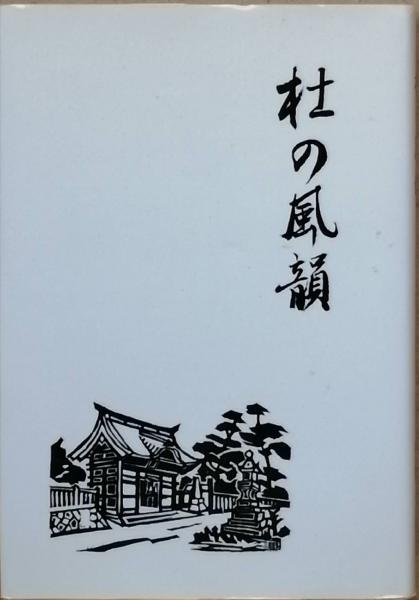 杜の風韻